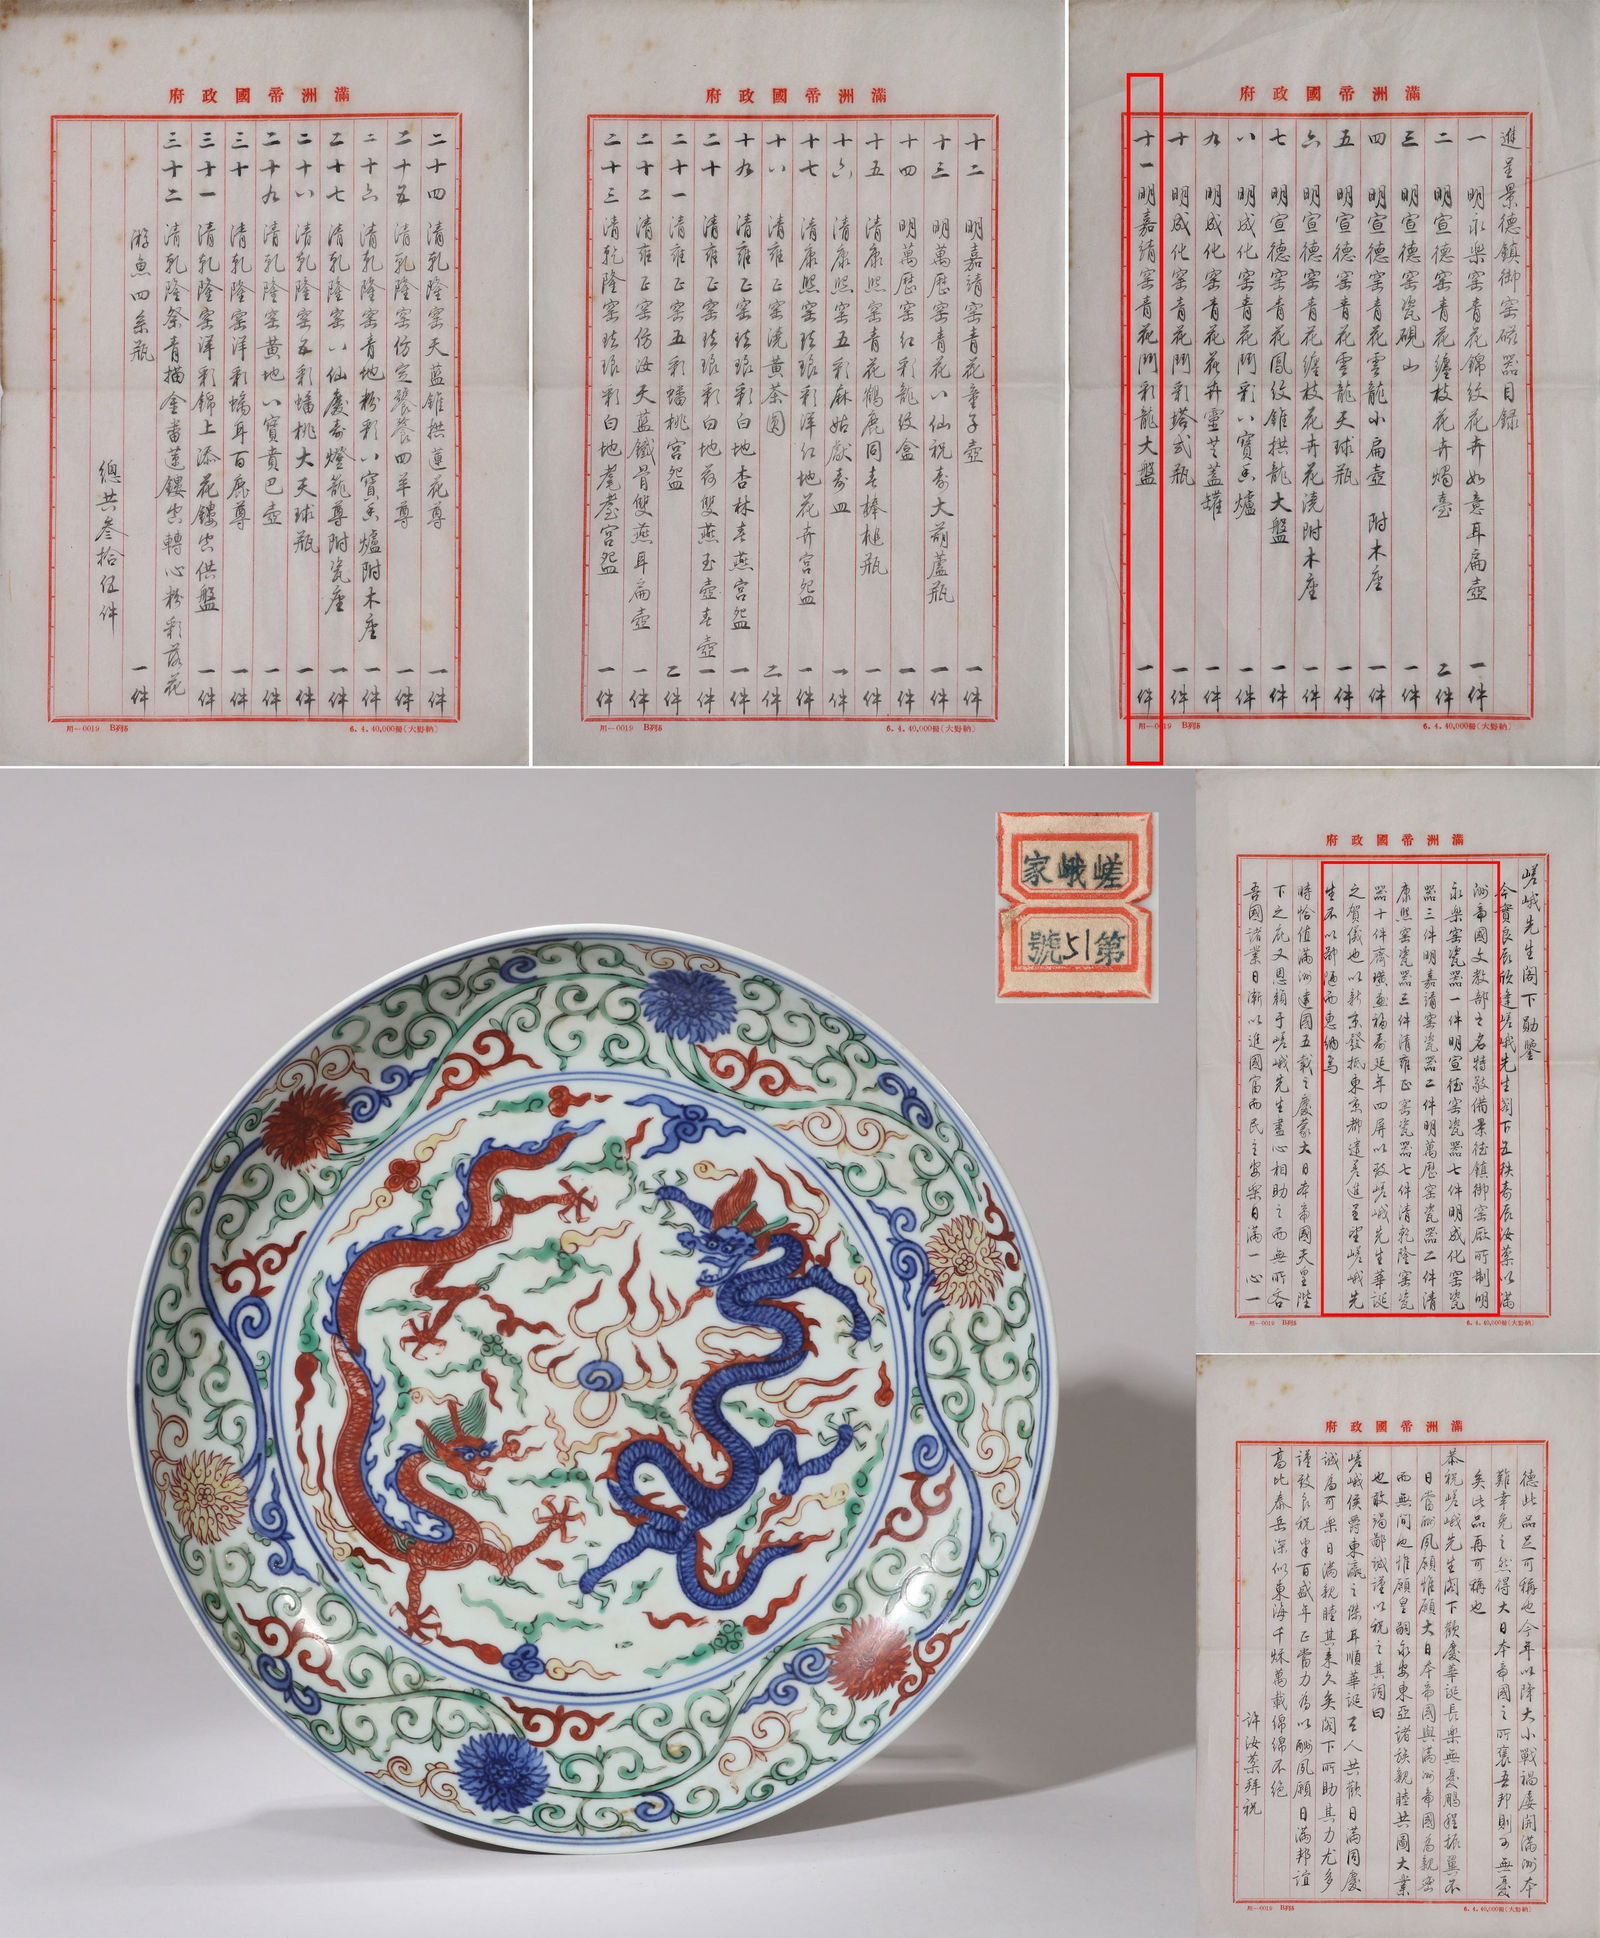 滿洲帝國政府
進呈景德鎮御窑磁器目録
一 明永樂窑青花錦紋花卉如意耳扁壺 一件
二 明宣德窑青花纏枝花卉燭臺 二件
三 明宣德窑瓷硯山 一件
四 明宣德窑青花雲龍小扁壺 附木座 一件
五 明宣德窑青花雲龍天球瓶 一件
六 明宣德窑青花纏枝花卉花澆附木座 一件
七 明宣德窑青花鳳紋錐拱龍大盤 一件
八 明成化窑青花鬥彩八寶香爐 一件
九 明成化窑青花花卉靈芝蓋罐 一件
十 明成化窑青花鬥彩塔式瓶 一件
十一 明嘉靖窑青花鬥彩龍大盤 一件
用一0019 B列5
6.4.40,000冊(大野納)
滿洲帝國政府
十二 明嘉靖窑青花童子壺 一件
十三 明萬歷窑青花八仙祝壽大葫蘆瓶 一件
十四 明萬歷窑紅彩龍紋盒 一件
十五 清康熙窑青花鶴鹿同春棒槌瓶 一件
十六 清康熙窑五彩麻姑獻壽皿 一件
十七 清康熙窑琺琅彩洋紅地花卉宮盌 一件
十八 清雍正窑澆黄茶圓 二件
十九 清雍正窑琺琅彩白地杏林春燕宮盌 一件
二十 清雍正窑琺琅彩白地荷雙燕玉壺春壺 一件
二十一 清雍正窑五彩蟠桃宮盌 二件
二十二 清雍正窑仿汝天藍鐵骨雙燕耳扁壺 一件
二十三 清乾隆窑琺琅彩白地耄耋宮盌 一件
用一0019 B列5
6.4.40,000冊(大野納)
滿洲帝國政府
二十四 清乾隆窑天藍錐拱蓮花尊 一件
二十五 清乾隆窑仿定饕餮四羊尊 一件
二十六 清乾隆窑青地粉彩八寶香爐附木座 一件
二十七 清乾隆窑八仙慶壽燈籠尊附瓷座 一件
二十八 清乾隆窑五彩蟠桃大天球瓶 一件
二十九 清乾隆窑黄地八寶賁巴壺 一件
三十 清乾隆窑洋彩螭耳百鹿尊 一件
三十一 清乾隆窑洋彩錦上添花鏤空供盤 一件
三十二 清乾隆祭青描金番蓮鏤空轉心粉彩落花
游魚四系瓶 一件
總共叁拾伍件
用一0019 B列5
6.4.40,000冊(大野納)
嵯峨家
第51號
滿洲帝國政府
嵯峨先生閣下勛鑒
今實良辰欣逢嵯峨先生閣下五秩壽辰汝棻以滿
洲帝國文教部之名特敬備景德鎮御窑廠所制明
永樂窑瓷器一件明宣德窑瓷器七件明成化窑瓷
器三件明嘉靖窑瓷器二件明萬歷窑瓷器二件清
康熙窑瓷器三件清雍正窑瓷器七件清乾隆窑瓷
器十件齊璜畫福壽延年四屏以致嵯峨先生華誕
之賀儀也以新京發抵東京都遣差進呈望嵯峨先
生不以鄙陋而惠納焉
時恰值滿洲建國五載之慶蒙大日本帝國天皇陛
下之庇又恩賴于嵯峨先生盡心相助之而無所吝
吾國諸業日漸以進國富而民之安樂日滿一心一
用一0019 B列5
6.4.40,000冊(大野納)
滿洲帝國政府
德此品足可稱也今年以降大小戰禍屢開滿洲本
難幸免之然得大日本帝國之所褒吾邦則可無憂
矣此品再可稱也
恭祝嵯峨先生閣下歡慶華誕長樂無憂鵬程振翼不
日當酬夙願惟願大日本帝國與滿洲帝國為親密
而無間也惟願皇嗣永安東亞諸族親睦共圖大業
也敢竭鄙誠謹以祝之其詞曰
嵯峨侯爵東瀛之傑耳順華誕百人共歡日滿同慶
誠為可樂日滿親睦其來久矣閣下所助其力尤多
謹致良祝半百盛年正當力為以酬夙願日滿邦誼
高比泰岳深似東海千秋萬載綿綿不絶
許汝棻拜祝
用一0019 B列5
6.4.40,000冊(大野納)